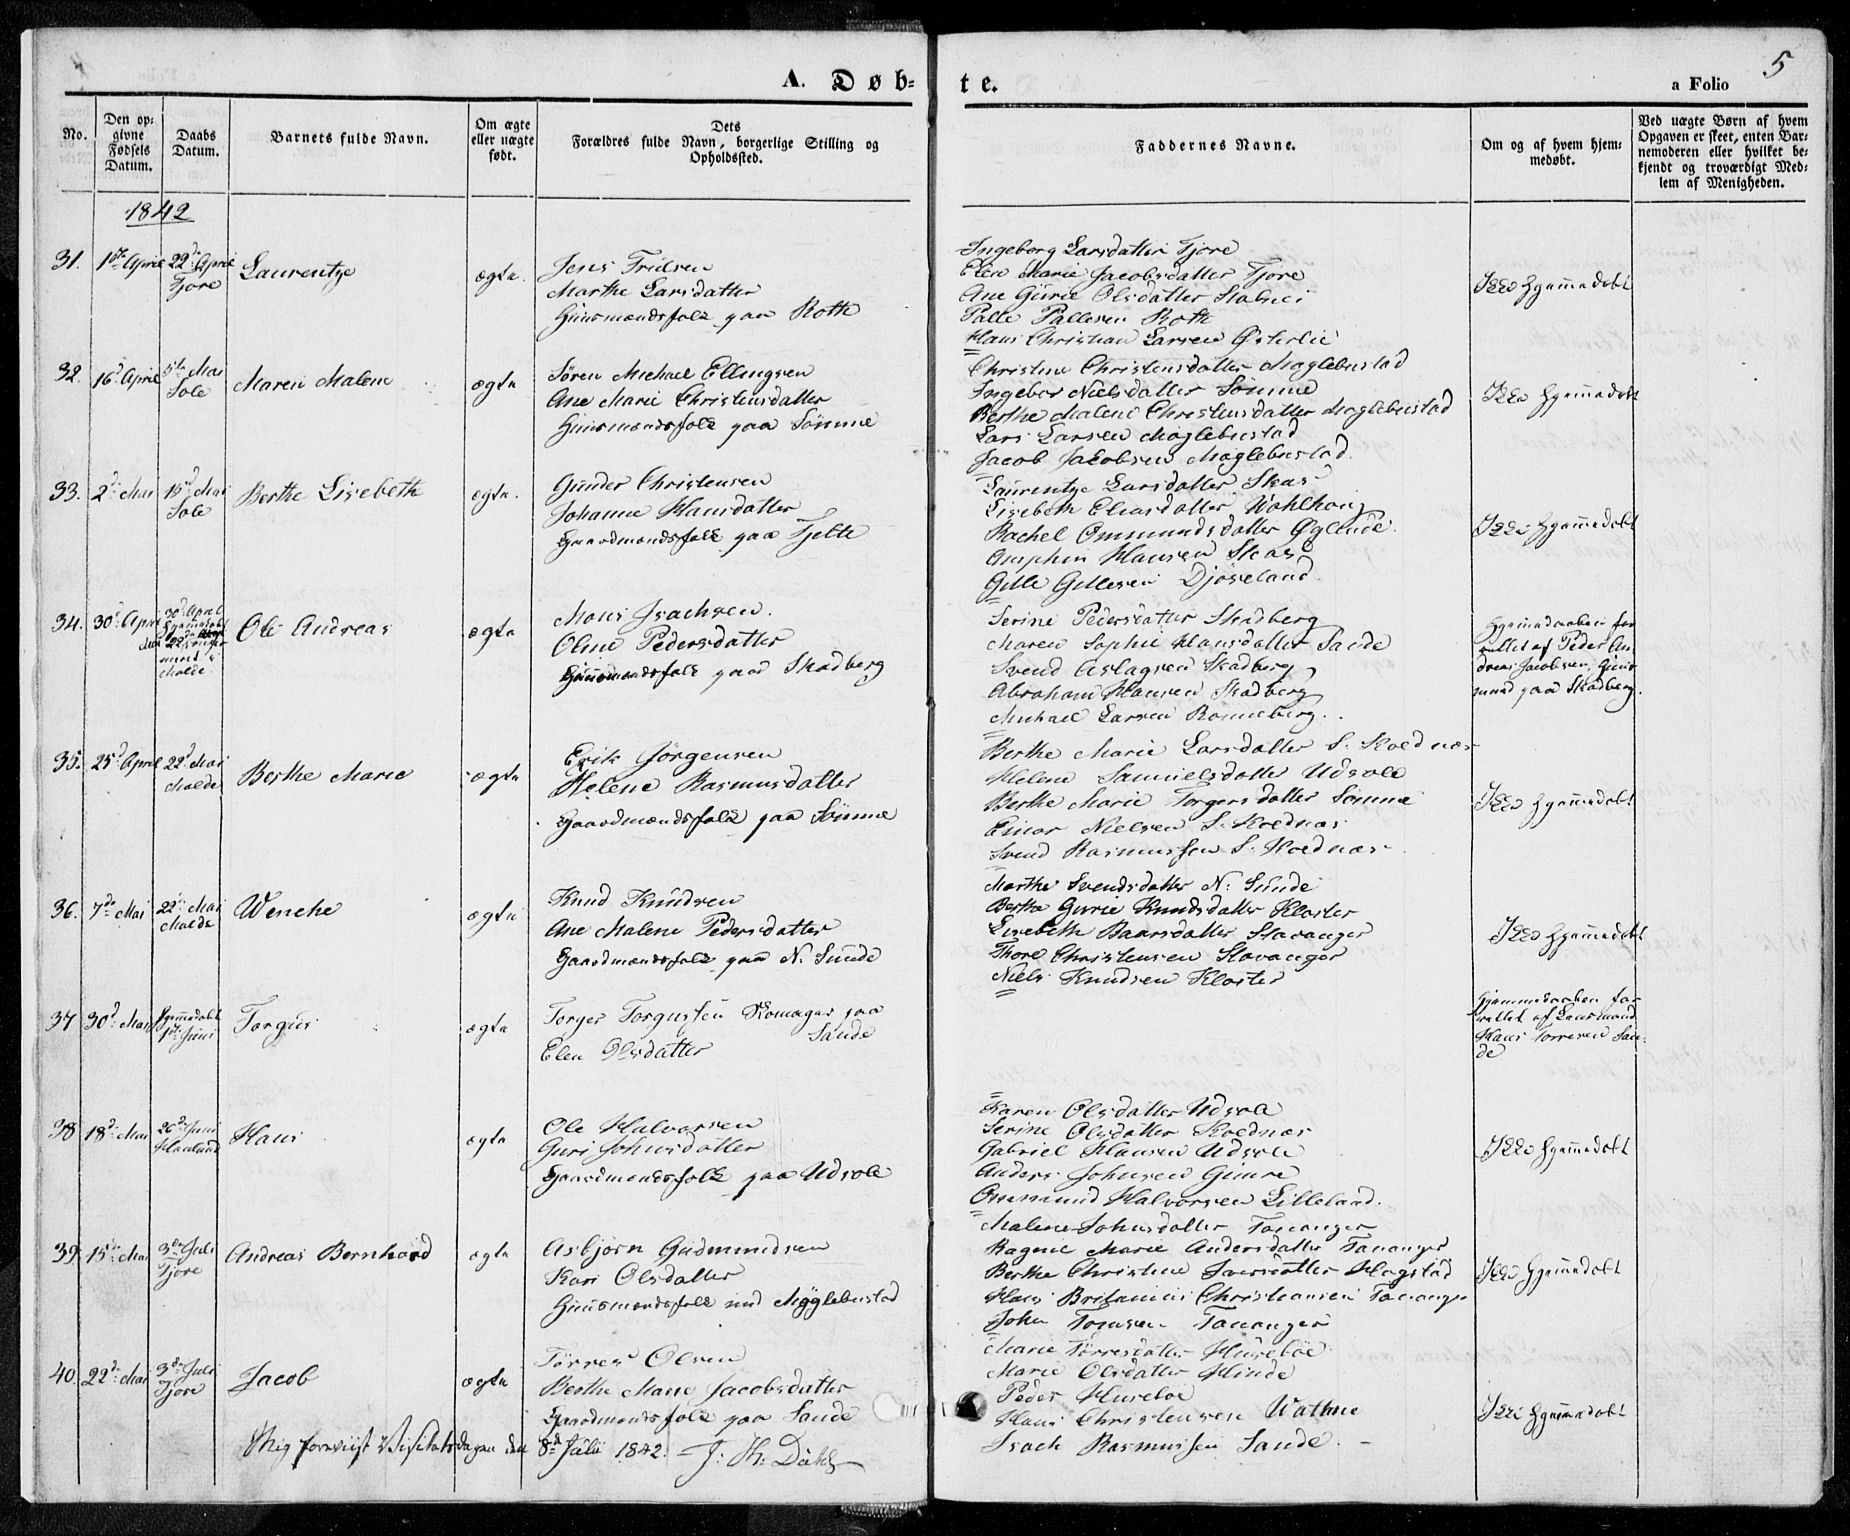 A. Døb-
te.
5
a Folio
No.
Den op-
givne
Fødsels
Datum.
Daabs
Datum.
Barnets fulde Navn.
Om ægte
eller uægte
født.
Dets
Forældres fulde Navn, borgerlige Stilling og
Opholdssted.
Faddernes Navne.
Om og af hvem hjem-
medøbt.
Ved uægte Børn af hvem
Opgaven er skeet, enten Bar-
nemoderen eller hvilket be-
kjendt og troværdigt Med-
lem af Menigheden.
1842
31. 1ste April 22de April
Tjore
Laurentze
ægte.
Jens
Marthe Larsdatter
Huusmandsfolk paa Roth
Ingeborg Larsdatter Tjore
Elen Marie Jacobsdatter Tjore
Ane Gurie Olsdatter
Palle Pallesen Roth
Hans Christian Larsen Østerlie
Ikke hjemmedøbt
32. 16d April 5te Mai
Sole
Maren Malene
ægte
Søren Michael Ellingsen
Ane Marie Christensdatter
Huusmandsfolk paa Sømme
Christine Christensdatter Møglebustad
Ingebor Nielsdatter Sømme
Berthe Malene Christensdatter Møglebustad
Lars Larsen Møglebustad
Jacob Jacobsen Møglebustad.
Ikke hjemmedøbt
33. 2de Mai 15d Mai
Sole
Berthe Lisebeth
ægte.
Gunder Christensen
Johanne Hansdatter
Gaardmandsfolk paa Tjelte
Laurentze Larsdatter Skas
Lisebeth Eliasdatter
Rachel Ommundsdatter Øglende.
Hansen Skas
Gille Gillesen
Ikke hjemmedøbt
34. 30d April
30d April
hjemmedøbt
22de
Malde.
Ole Andreas
ægte
Mons Isachsen.
Oline Pedersdatter
Huusmandsfolk paa Skadberg
Serine Pedersdatter Skadberg
Maren Sophie Hansdatter Sande
Svend Aslagsen Skadberg
Abraham Hansen Skadberg
Michael Larsen Ronneberg.
Hjemmedaaben for
rettet af Peder An
dreas Jacobsen, Huus
mand paa Skadberg.
35. 25d April 22d Mai
Malde
Berthe Marie
ægte
Erik Jørgensen
Helene Rasmusdatter
Gaardmandsfolk paa Sømme
Berthe Marie Larsdatter S. Koldnæs
Helene Samuelsdatter Udsole
Berthe Marie Torgersdatter Sømme
Einar Nielsen S. Koldnæs
Svend Rasmussen S. Koldnæs
Ikke hjemmedøbt
36. 7de Mai 22d Mai
Malde
Wenche
ægte
Knud Knudsen
Ane Malene Pedersdatter
Gaardmandsfolk paa N. Sunde
Marthe Svendsdatter N. Sunde
Berthe Gurie Knudsdatter Kloster
Lisebeth Baarsdatter Stavanger
Thore Christensen Stavanger
Niels Knudsen Kloster
Ikke hjemmedøbt
37 30d Mai
hjemmedøbt
1ste Juni
Torgus
ægte
Torger Torgussen Skomager paa
Sande
Elen Olsdatter
Hjemmedaaben for
rettet af Lensmand
Hans Torresen San-
de
38 18d Mai 26de Juni
Haaland
Hans
ægte
Ole Halvorsen
Guri Johnsdatter
Gaardmandsfolk paa Udsole
Karen Olsdatter Udsole
Serine Olsdatter Koldnæs
Gabriel Hansen Udsole
Anders Johnsen Gimre
Ommund Halvorsen Lilleland.
Ikke hjemmedøbt
39. 15de Mai 3die Juli
Tjore
Andreas Bernhard
ægte
Asbjørn Gudmundsen
Kari Olsdatter
Huusmandsfolk ved Møglebustad
Malene Johnsdatter Tananger
Ragnil Marie Andersdatter Tananger
Berthe Christine Hagstad
Hans Britanius Christiansen Tananger
John Tomsen Tananger
Ikke hjemmedøbt
40. 22de Mai 3die Juli
Tjore
Jacob
ægte
Tørres Olsen
Berthe Marie Jacobsdatter
Gaardmandsfolk paa Sande
Marie Tørresdatter Husebøe
Marie Olsdatter Hinde
Peder Husebøe
Hans Christensen Wathne
Isach Rasmussen Sande.
Ikke hjemmedøbt
Mig foreviist Visitatsdagen den 8de Juli 1842. J. H. Dahl